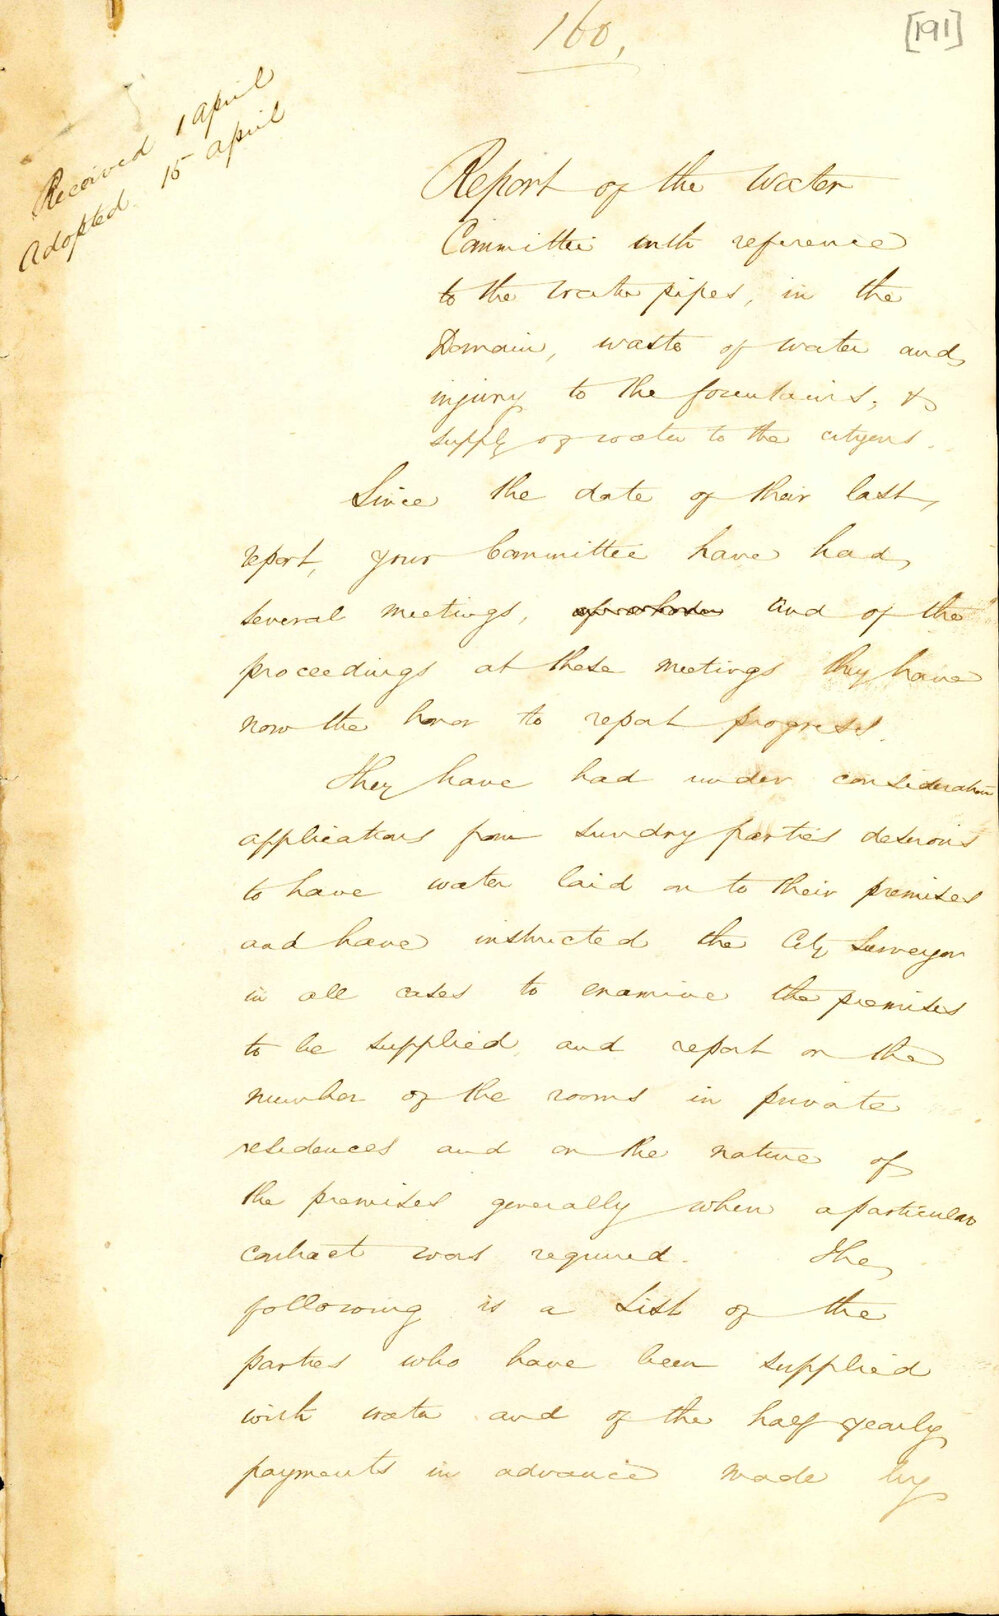 160,
[191]
Received 1 April
Adopted 15 April
Report of the Water
Committee with reference
to the water pipes, in the
Domain, waste of water and
injury to the fountains, &
supply of water to the citizens.
Since the date of their last
report, your Committee have had
several meetings, and of the
proceedings at these meetings they have
now the honor to report progress.
They have had under consideration
applications from sundry parties desirous
to have water laid on to their premises
and have instructed the City Surveyor
in all cases to examine the premises
to be supplied, and report on the
number of the rooms in private
residences and on the nature of
the premises generally when a particular
contract was required. The
following is a List of the
parties who have been supplied
with water and of the half yearly
payments in advance made by